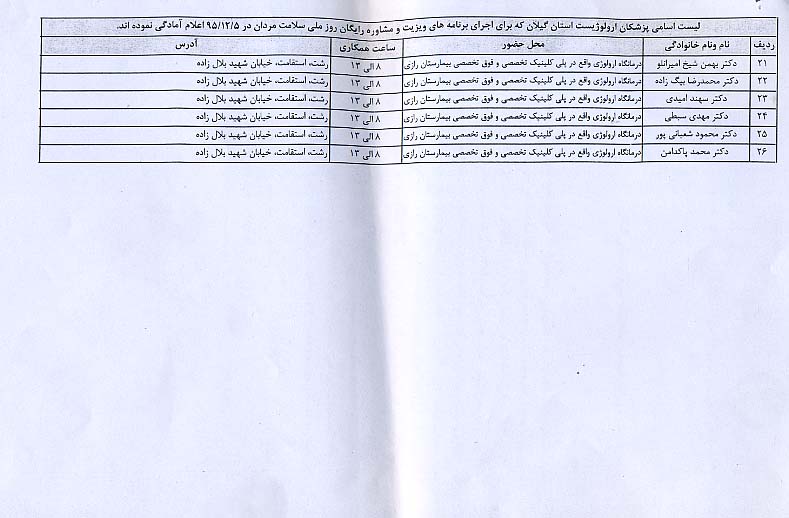 لیست اسامی پزشکان ارولوژیست استان گیلان که برای اجرای برنامه های ویزیت و مشاوره رایگان روز ملی سلامت مردان در ۹۵/۱۲/۵ اعلام آمادگی نموده اند.
ردیف نام ونام خانوادگی محل حضور ساعت همکاری آدرس
۲۱ دکتر بهمن شیخ امیرانلو درمانگاه ارولوژی واقع در پلی کلینیک تخصصی و فوق تخصصی بیمارستان رازی ۸ الی ۱۳ رشت، استقامت، خیابان شهید بلال زاده
۲۲ دکتر محمدرضا بیگ زاده درمانگاه ارولوژی واقع در پلی کلینیک تخصصی و فوق تخصصی بیمارستان رازی ۸ الی ۱۳ رشت، استقامت، خیابان شهید بلال زاده
۲۳ دکتر سهند امیدی درمانگاه ارولوژی واقع در پلی کلینیک تخصصی و فوق تخصصی بیمارستان رازی ۸ الی ۱۳ رشت، استقامت، خیابان شهید بلال زاده
۲۴ دکتر مهدی سبطی درمانگاه ارولوژی واقع در پلی کلینیک تخصصی و فوق تخصصی بیمارستان رازی ۸ الی ۱۳ رشت، استقامت، خیابان شهید بلال زاده
۲۵ دکتر محمود شعبانی پور درمانگاه ارولوژی واقع در پلی کلینیک تخصصی و فوق تخصصی بیمارستان رازی ۸ الی ۱۳ رشت، استقامت، خیابان شهید بلال زاده
۲۶ دکتر محمد پاکدامن درمانگاه ارولوژی واقع در پلی کلینیک تخصصی و فوق تخصصی بیمارستان رازی ۸ الی ۱۳ رشت، استقامت، خیابان شهید بلال زاده